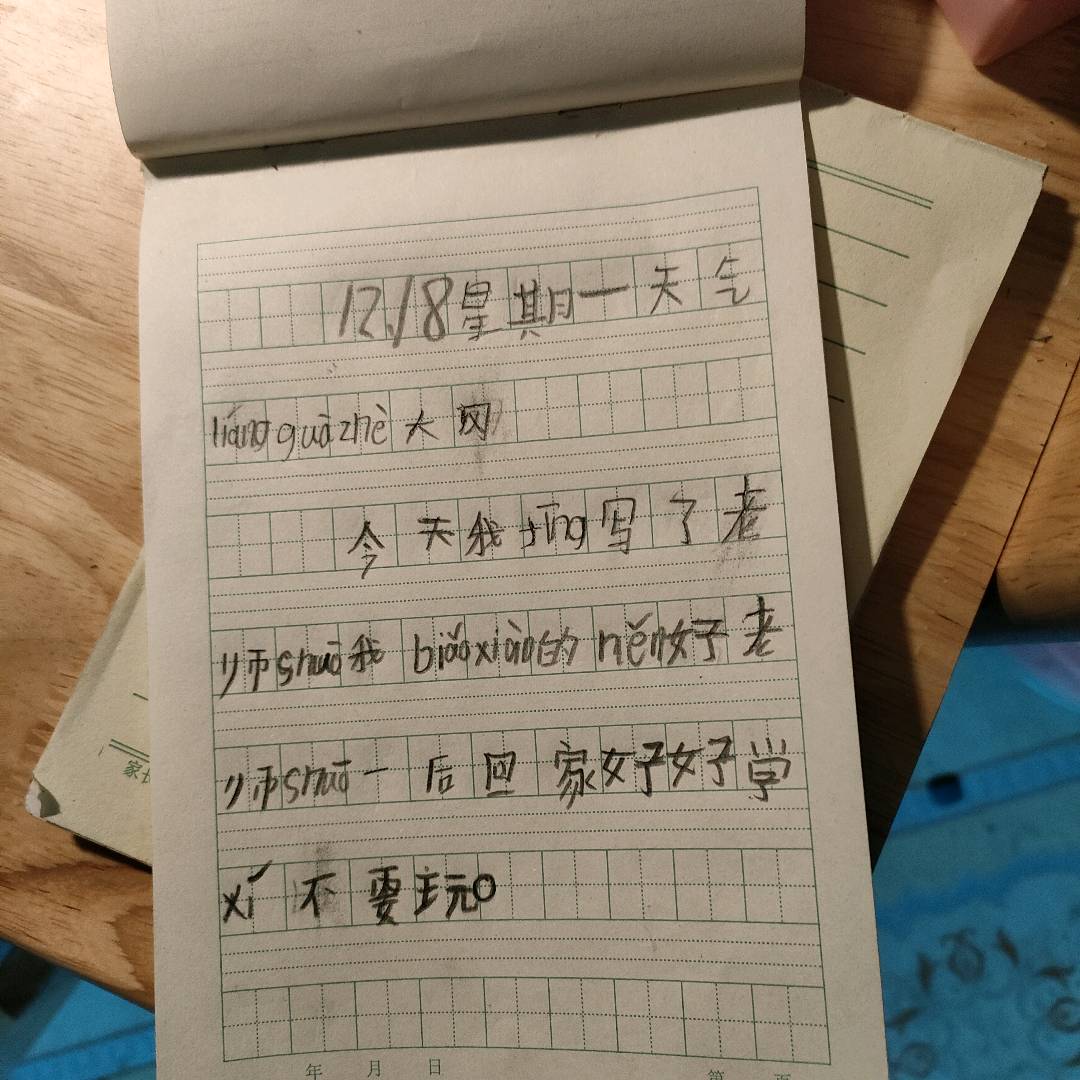 12.18星期一天气
liáng guà zhè大风
今天我tīng写了老
师shuō我biǎo xiàn的hěn好老
师shuō一后回家好好学
xí不要玩。
家长
年 月 日
第 页